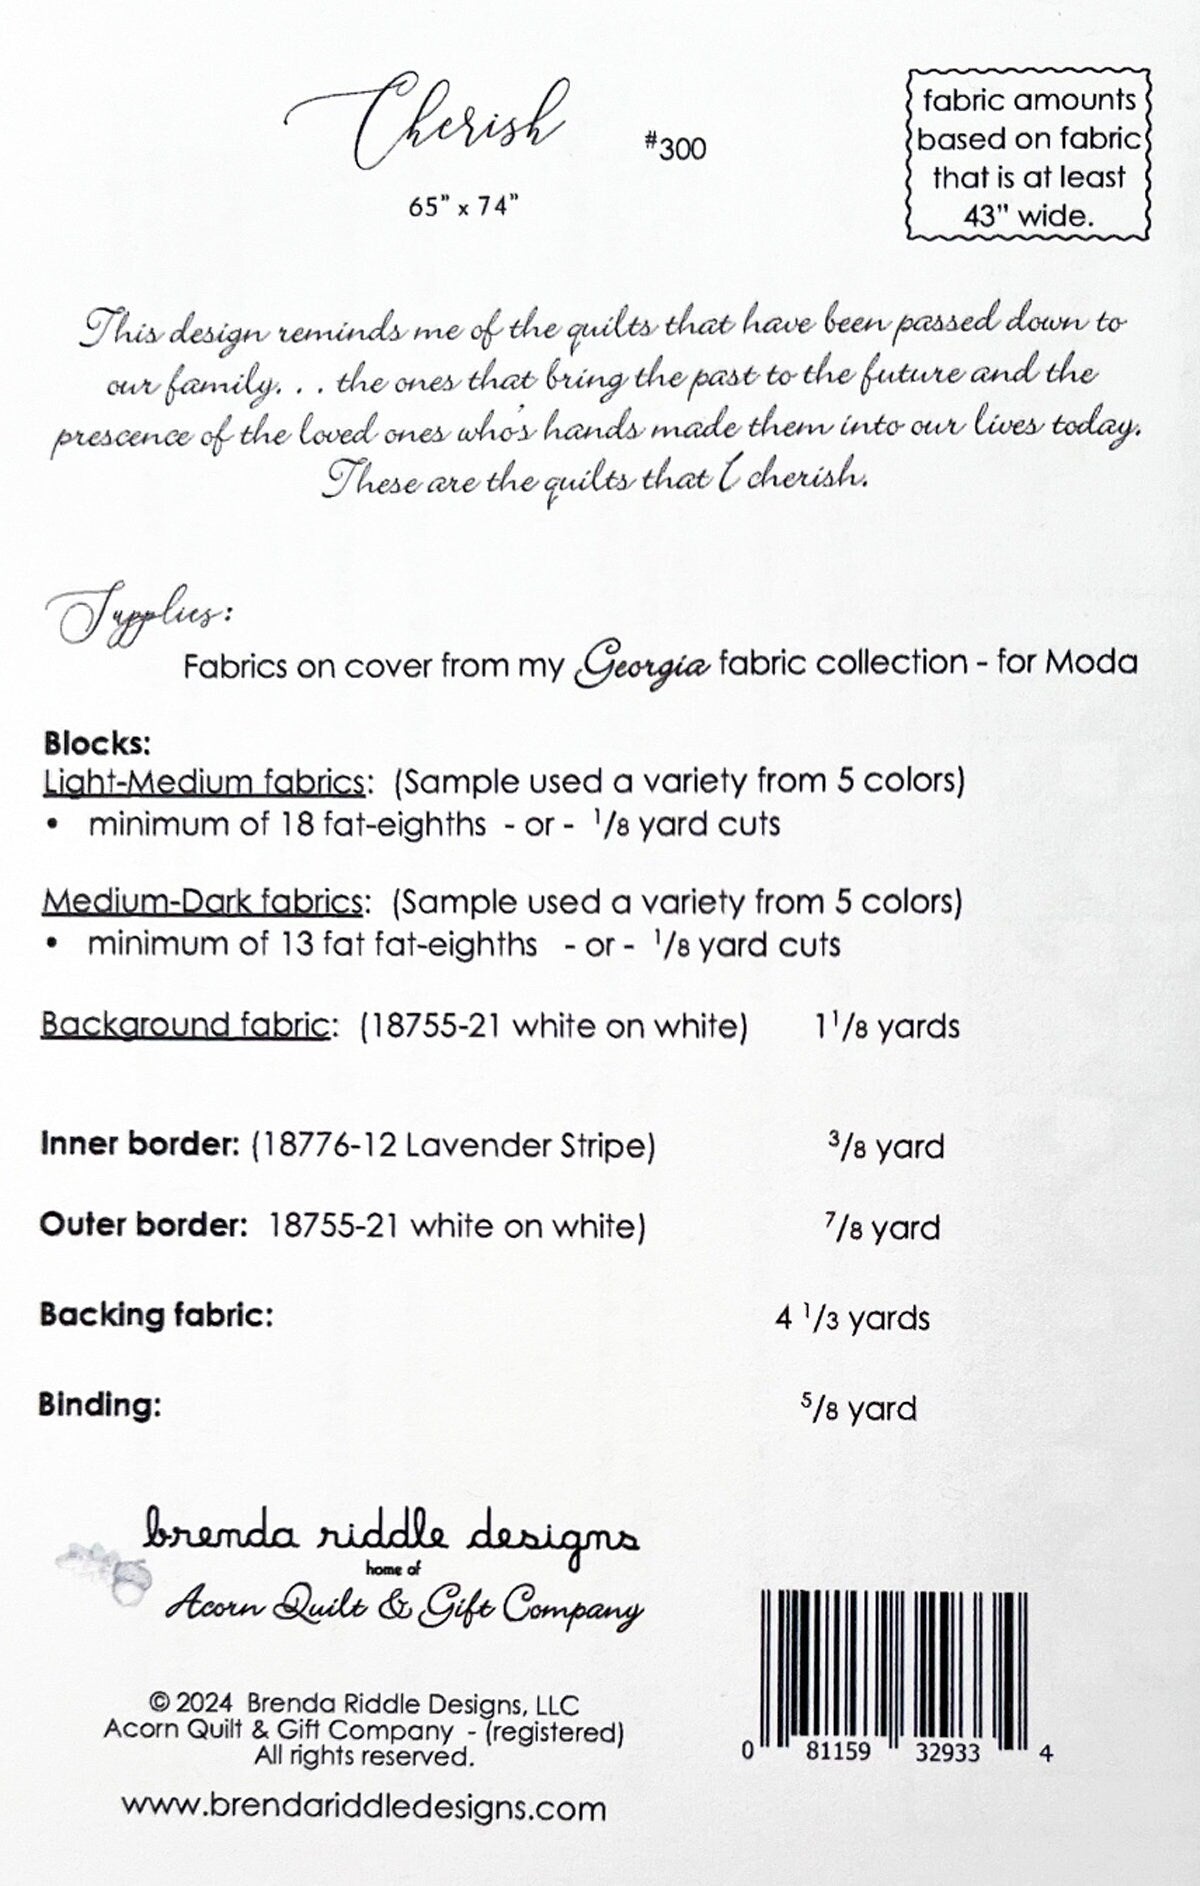 Cherish
#300
65" x 74"
fabric amounts
based on fabric
that is at least
43" wide.
This design reminds me of the quilts that have been passed down to
our family. . . the ones that bring the past to the future and the
prescence of the loved ones who's hands made them into our lives today.
These are the quilts that I cherish.
Supplies:
Fabrics on cover from my Georgia fabric collection - for Moda
Blocks:
Light-Medium fabrics: (Sample used a variety from 5 colors)
• minimum of 18 fat-eighths - or - 1/8 yard cuts
Medium-Dark fabrics: (Sample used a variety from 5 colors)
• minimum of 13 fat fat-eighths - or - 1/8 yard cuts
Background fabric: (18755-21 white on white) 1 1/8 yards
Inner border: (18776-12 Lavender Stripe) 3/8 yard
Outer border: 18755-21 white on white) 7/8 yard
Backing fabric: 4 1/3 yards
Binding: 5/8 yard
brenda riddle designs
home of
Acorn Quilt & Gift Company
© 2024 Brenda Riddle Designs, LLC
Acorn Quilt & Gift Company - (registered)
All rights reserved.
www.brendariddledesigns.com
0 81159 32933 4